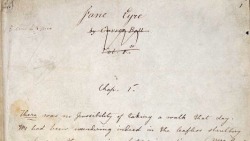 Jane Eyre
by Currer Bell
Vol. 1st
Chap. 1st
There was no possibility of taking a walk that day.
We had been wandering indeed in the leafless shrubbery